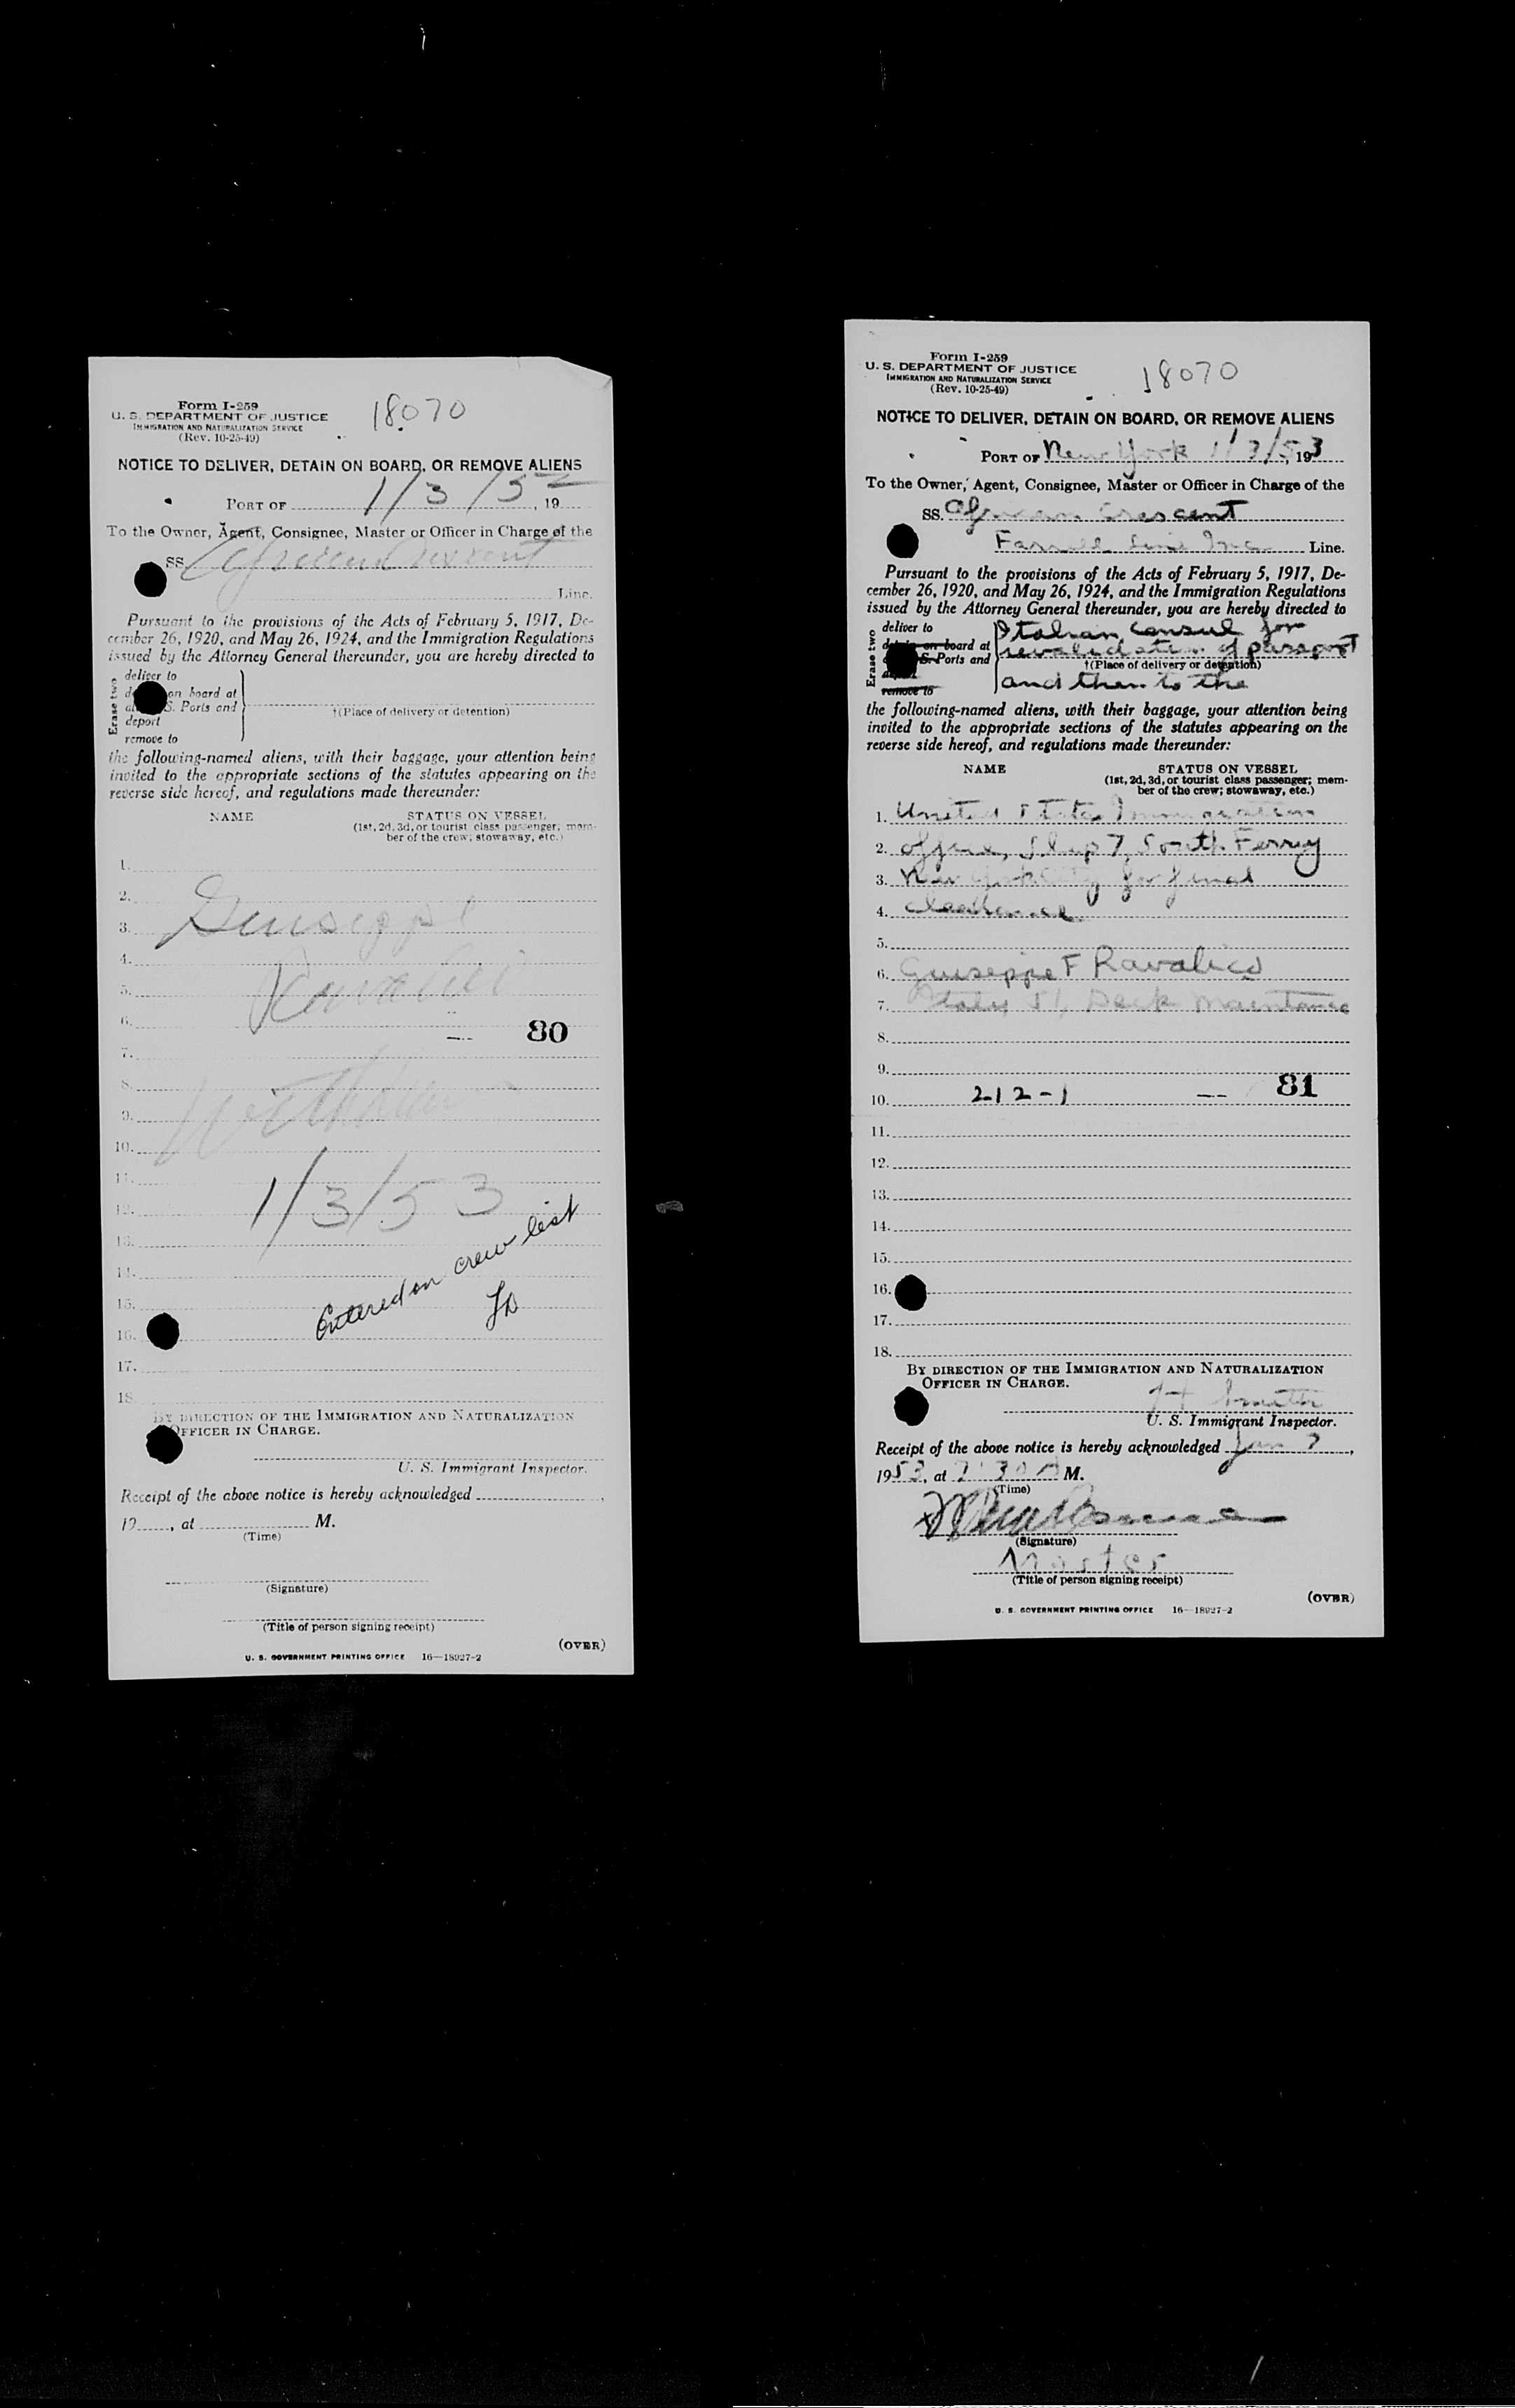 Form I-259
U. S. DEPARTMENT OF JUSTICE
IMMIGRATION AND NATURALIZATION SERVICE
(Rev. 10-25-49)
18070
NOTICE TO DELIVER, DETAIN ON BOARD, OR REMOVE ALIENS
PORT OF 1/3/52, 19
To the Owner, Agent, Consignee, Master or Officer in Charge of the
SS. African Crescent
Line.
Pursuant to the provisions of the Acts of February 5, 1917, De-
cember 26, 1920, and May 26, 1924, and the Immigration Regulations
issued by the Attorney General thereunder, you are hereby directed to
Erase two
deliver to
on board at
S. Ports and
deport
remove to
†(Place of delivery or detention)
the following-named aliens, with their baggage, your attention being
invited to the appropriate sections of the statutes appearing on the
reverse side hereof, and regulations made thereunder:
NAME STATUS ON VESSEL
(1st, 2d, 3d, or tourist class passenger; mem-
ber of the crew; stowaway, etc.)
1.
2.
3. Giuseppe
4.
5.
6.
80
7.
8.
9.
10.
11.
12. 1/3/53
13.
14.
15.
16.
Entered on crew list
17.
18.
BY DIRECTION OF THE IMMIGRATION AND NATURALIZATION
OFFICER IN CHARGE.
U. S. Immigrant Inspector.
Receipt of the above notice is hereby acknowledged
19, at M.
(Time)
(Signature)
(Title of person signing receipt)
(OVER)
U. S. GOVERNMENT PRINTING OFFICE 16—18927-2
Form I-259
U. S. DEPARTMENT OF JUSTICE
IMMIGRATION AND NATURALIZATION SERVICE
(Rev. 10-25-49)
18070
NOTICE TO DELIVER, DETAIN ON BOARD, OR REMOVE ALIENS
PORT OF New York 1/3/53, 193
To the Owner, Agent, Consignee, Master or Officer in Charge of the
SS. African Crescent
Farrell Line Inc. Line.
Pursuant to the provisions of the Acts of February 5, 1917, De-
cember 26, 1920, and May 26, 1924, and the Immigration Regulations
issued by the Attorney General thereunder, you are hereby directed to
Erase two
deliver to Italian Consul for
on board at revalidation of passport
S. Ports and †(Place of delivery or detention)
remove to and then to the
the following-named aliens, with their baggage, your attention being
invited to the appropriate sections of the statutes appearing on the
reverse side hereof, and regulations made thereunder:
NAME STATUS ON VESSEL
(1st, 2d, 3d, or tourist class passenger; mem-
ber of the crew; stowaway, etc.)
1. United States Immigration
2. office, Slip 7, South Ferry
3. New York City for final
4. clearance
5.
6. Giuseppe F Ravalico
7. Italy 51, Deck Maintance
8.
9.
81
10. 212-1
11.
12.
13.
14.
15.
16.
17.
18.
BY DIRECTION OF THE IMMIGRATION AND NATURALIZATION
OFFICER IN CHARGE.
U. S. Immigrant Inspector.
Receipt of the above notice is hereby acknowledged Jan
1953, at M.
(Time)
(Signature)
Master
(Title of person signing receipt)
(OVER)
U. S. GOVERNMENT PRINTING OFFICE 16—18927-2